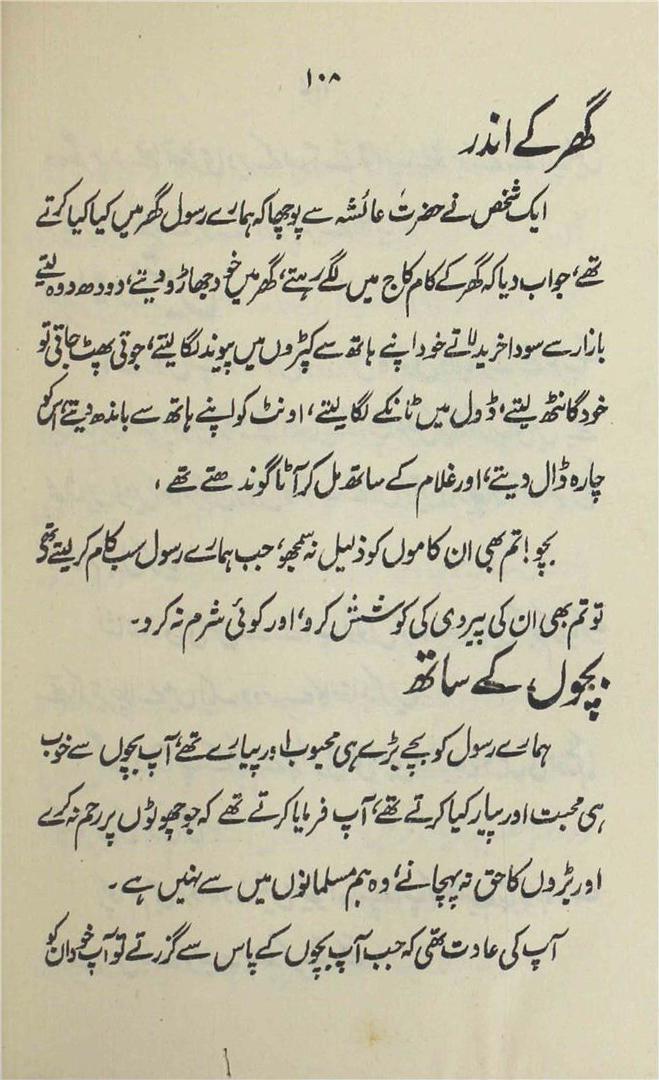 ۱۰۸
گھر کے اندر
ایک شخص نے حضرت عائشہ سے پوچھا کہ ہمارے رسول گھر میں کیا کیا کرتے
تھے، جواب دیا کہ گھر کے کام کاج میں لگے رہتے، گھر میں خود جھاڑو دیتے، دودھ دوہ لیتے
بازار سے سودا خرید لاتے خود اپنے ہاتھ سے کپڑوں میں پیوند لگا لیتے، جوتی پھٹ جاتی تو
خود گانٹھ لیتے، ڈول میں ٹانکے لگا لیتے، اونٹ کو اپنے ہاتھ سے باندھ دیتے، اس کو
چارہ ڈال دیتے، اور غلام کے ساتھ مل کر آٹا گوندھتے تھے،
بچو! تم بھی ان کاموں کو ذلیل نہ سمجھو، جب ہمارے رسول سب کام کر لیتے تھے
تو تم بھی ان کی پیروی کی کوشش کرو، اور کوئی شرم نہ کرو۔
بچوں کے ساتھ
ہمارے رسول کو بچے بڑے ہی محبوب اور پیارے تھے، آپ بچوں سے خوب
ہی محبت اور پیار کیا کرتے تھے، آپ فرمایا کرتے تھے کہ جو چھوٹوں پر رحم نہ کرے
اور بڑوں کا حق نہ پہچانے، وہ ہم مسلمانوں میں سے نہیں ہے۔
آپ کی عادت تھی کہ جب آپ بچوں کے پاس سے گزرتے تو آپ خود ان کو